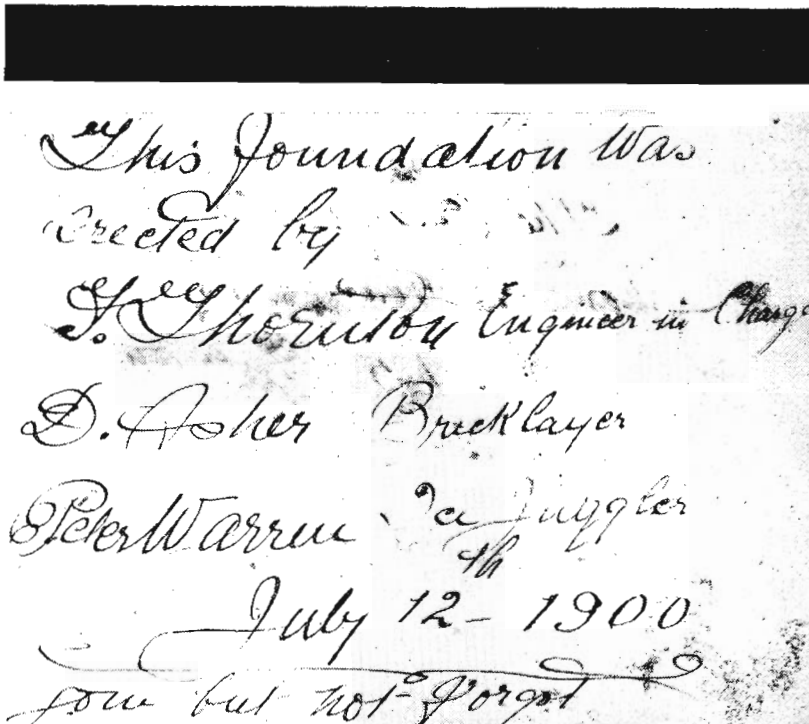 This Foundation Was
Erected by
T. Thornton Engineer in Charge
D. Asher Bricklayer
Peter Warren Juggler
July 12th - 1900
gone but not Forgot